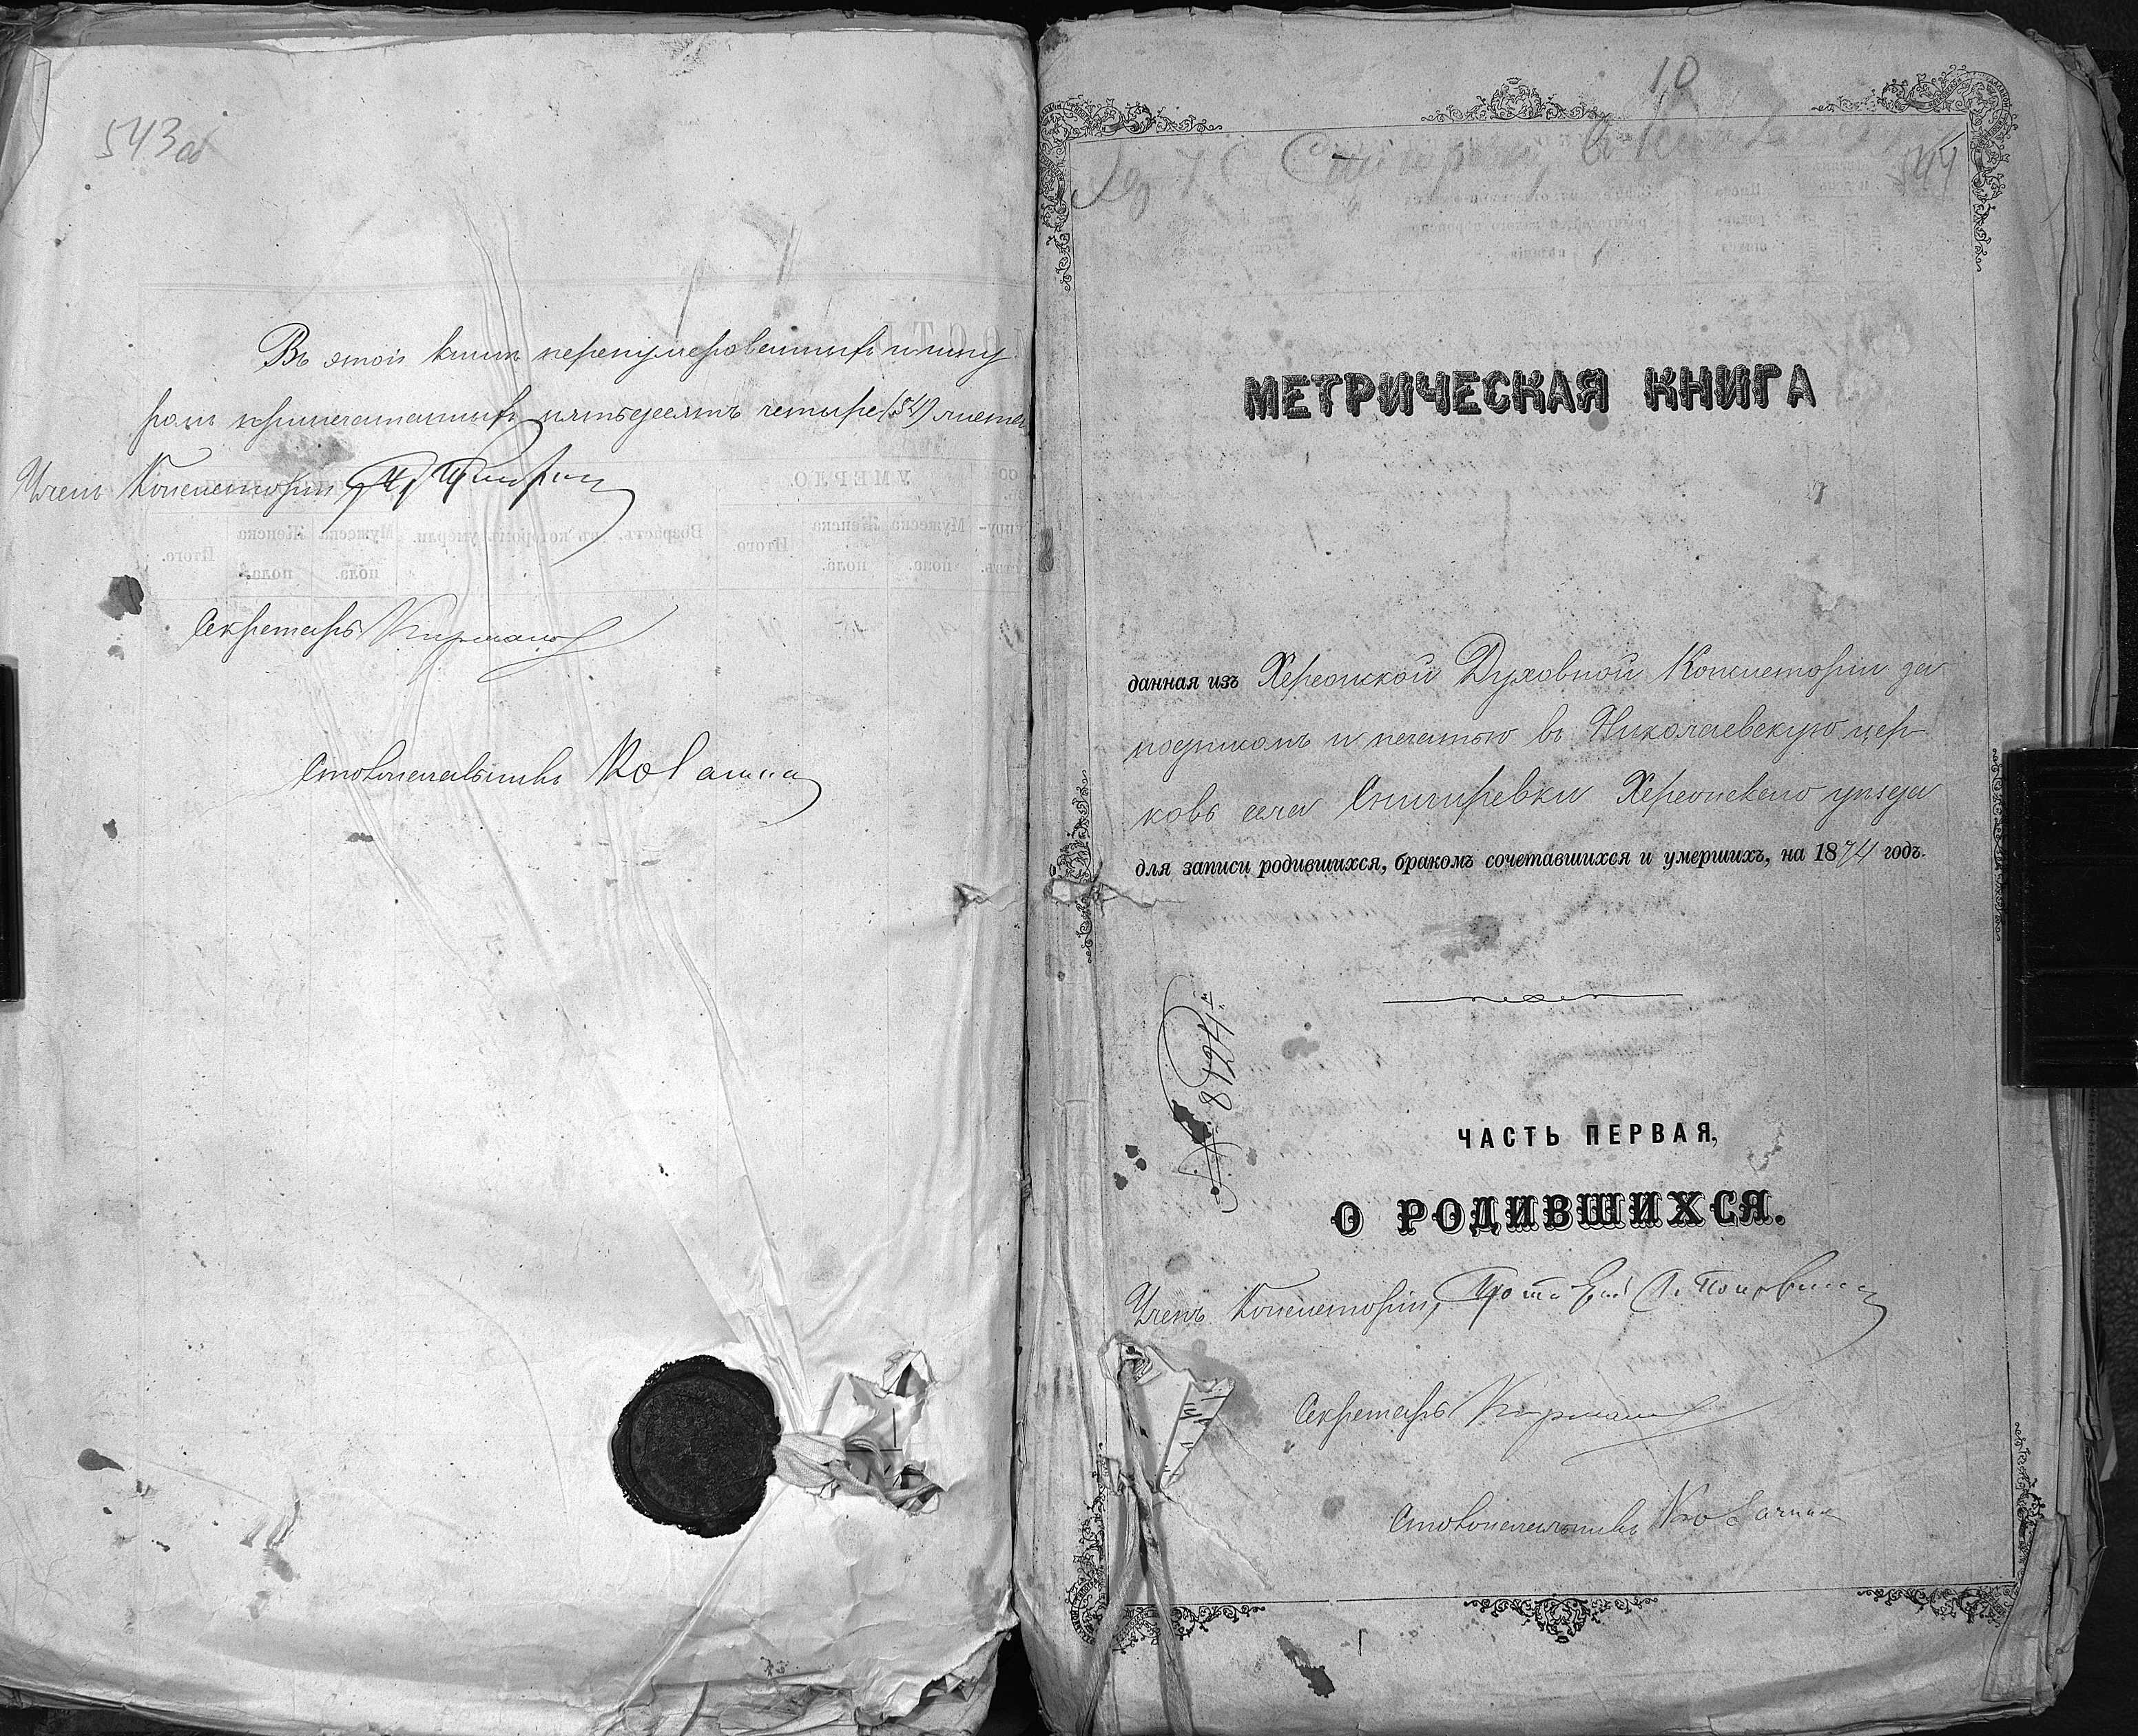 543 об
Въ этой книгѣ перенумерованныхъ и шну
ромъ припечатанныхъ пятьдесятъ четыре (54) листа
Членъ Консисторіи
Секретарь
Столоначальникъ
10
544
МЕТРИЧЕСКАЯ КНИГА
данная изъ Херсонской Духовной Консисторіи за
подписомъ и печатью въ Николаевскую цер-
ковь села Снигиревки Херсонскаго уѣзда
для записи родившихся, бракомъ сочетавшихся и умершихъ, на 1874 годъ.
№ 8124
ЧАСТЬ ПЕРВАЯ,
О РОДИВШИХСЯ.
Членъ Консисторіи, Протоіерей
Секретарь
Столоначальникъ